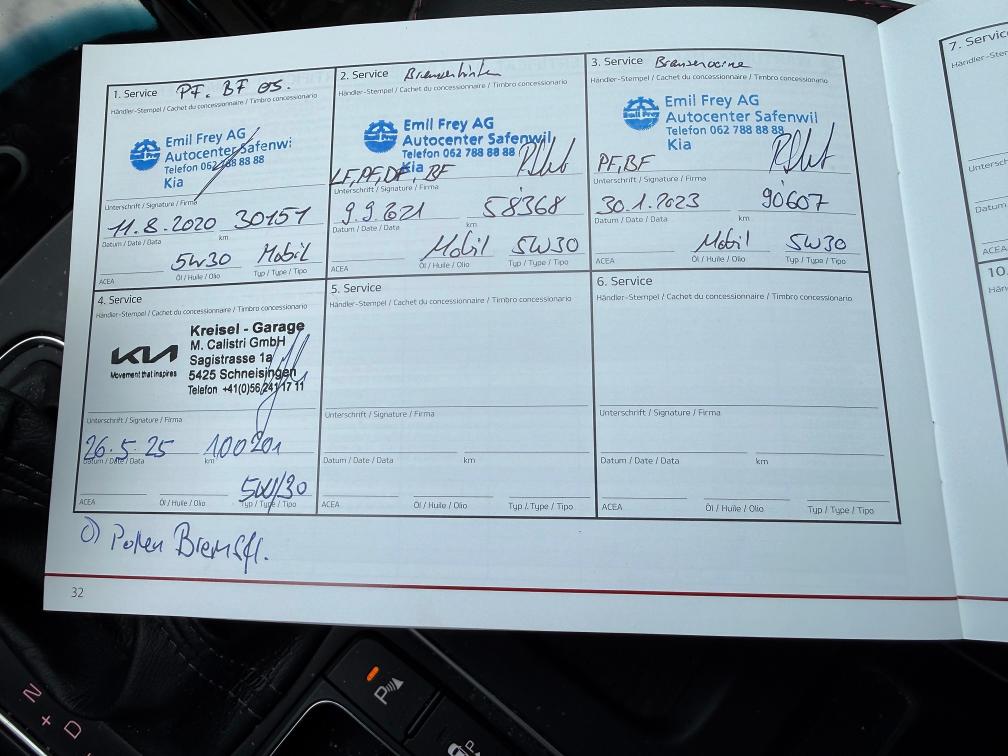 1. Service PF. BF
Händler-Stempel / Cachet du concessionnaire / Timbro concessionario
Emil Frey AG
Autocenter Safenwi
Telefon 062 788 88 88
Kia
Unterschrift / Signature / Firma
11.8.2020 30151
Datum / Date / Data km
5W30 Mobil
ACEA Öl / Huile / Olio Typ / Type / Tipo
2. Service
Händler-Stempel / Cachet du concessionnaire / Timbro concessionario
Emil Frey AG
Autocenter Safenwil
Telefon 062 788 88 88
Kia
LF, PF, DF, BF
Unterschrift / Signature / Firma
9.9.2021 58368
Datum / Date / Data km
Mobil 5W30
ACEA Öl / Huile / Olio Typ / Type / Tipo
3. Service
Händler-Stempel / Cachet du concessionnaire / Timbro concessionario
Emil Frey AG
Autocenter Safenwil
Telefon 062 788 88 88
Kia
PF, BF
Unterschrift / Signature / Firma
30.1.2023 90607
Datum / Date / Data km
Mobil 5W30
ACEA Öl / Huile / Olio Typ / Type / Tipo
4. Service
Händler-Stempel / Cachet du concessionnaire / Timbro concessionario
KIA
Movement that inspires
Kreisel - Garage
M. Calistri GmbH
Sagistrasse 1a
5425 Schneisingen
Telefon +41(0)56 241 17 11
Unterschrift / Signature / Firma
26.5.25 100201
Datum / Date / Data km
5W/30
ACEA Öl / Huile / Olio Typ / Type / Tipo
5. Service
Händler-Stempel / Cachet du concessionnaire / Timbro concessionario
Unterschrift / Signature / Firma
Datum / Date / Data km
ACEA Öl / Huile / Olio Typ / Type / Tipo
6. Service
Händler-Stempel / Cachet du concessionnaire / Timbro concessionario
Unterschrift / Signature / Firma
Datum / Date / Data km
ACEA Öl / Huile / Olio Typ / Type / Tipo
Pollen Bremsfl.
32
7. Servic
Händler-Ste
Untersch
Datum
ACEA
10.
Hän
N
+ D
P
P